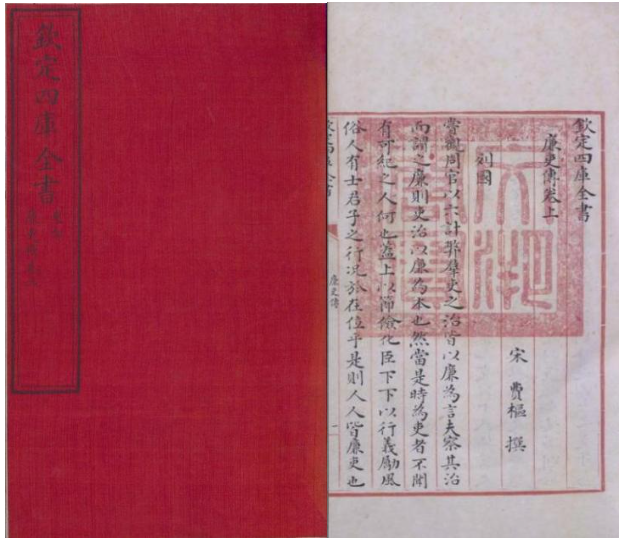 欽定四庫全書
欽定四庫全書
廉吏傳卷上
宋 費樞 撰
列國
嘗觀周官以六計弊羣吏之治皆以廉為言夫察其治
而謂之廉則吏治以廉為本也然當是時為吏者不聞
有可紀之人何也葢上以節儉化臣下下以行義勵風
俗人有士君子之行况於在位乎是則人人皆廉吏也
欽定四庫全書
廉吏傳
一
文淵閣寶